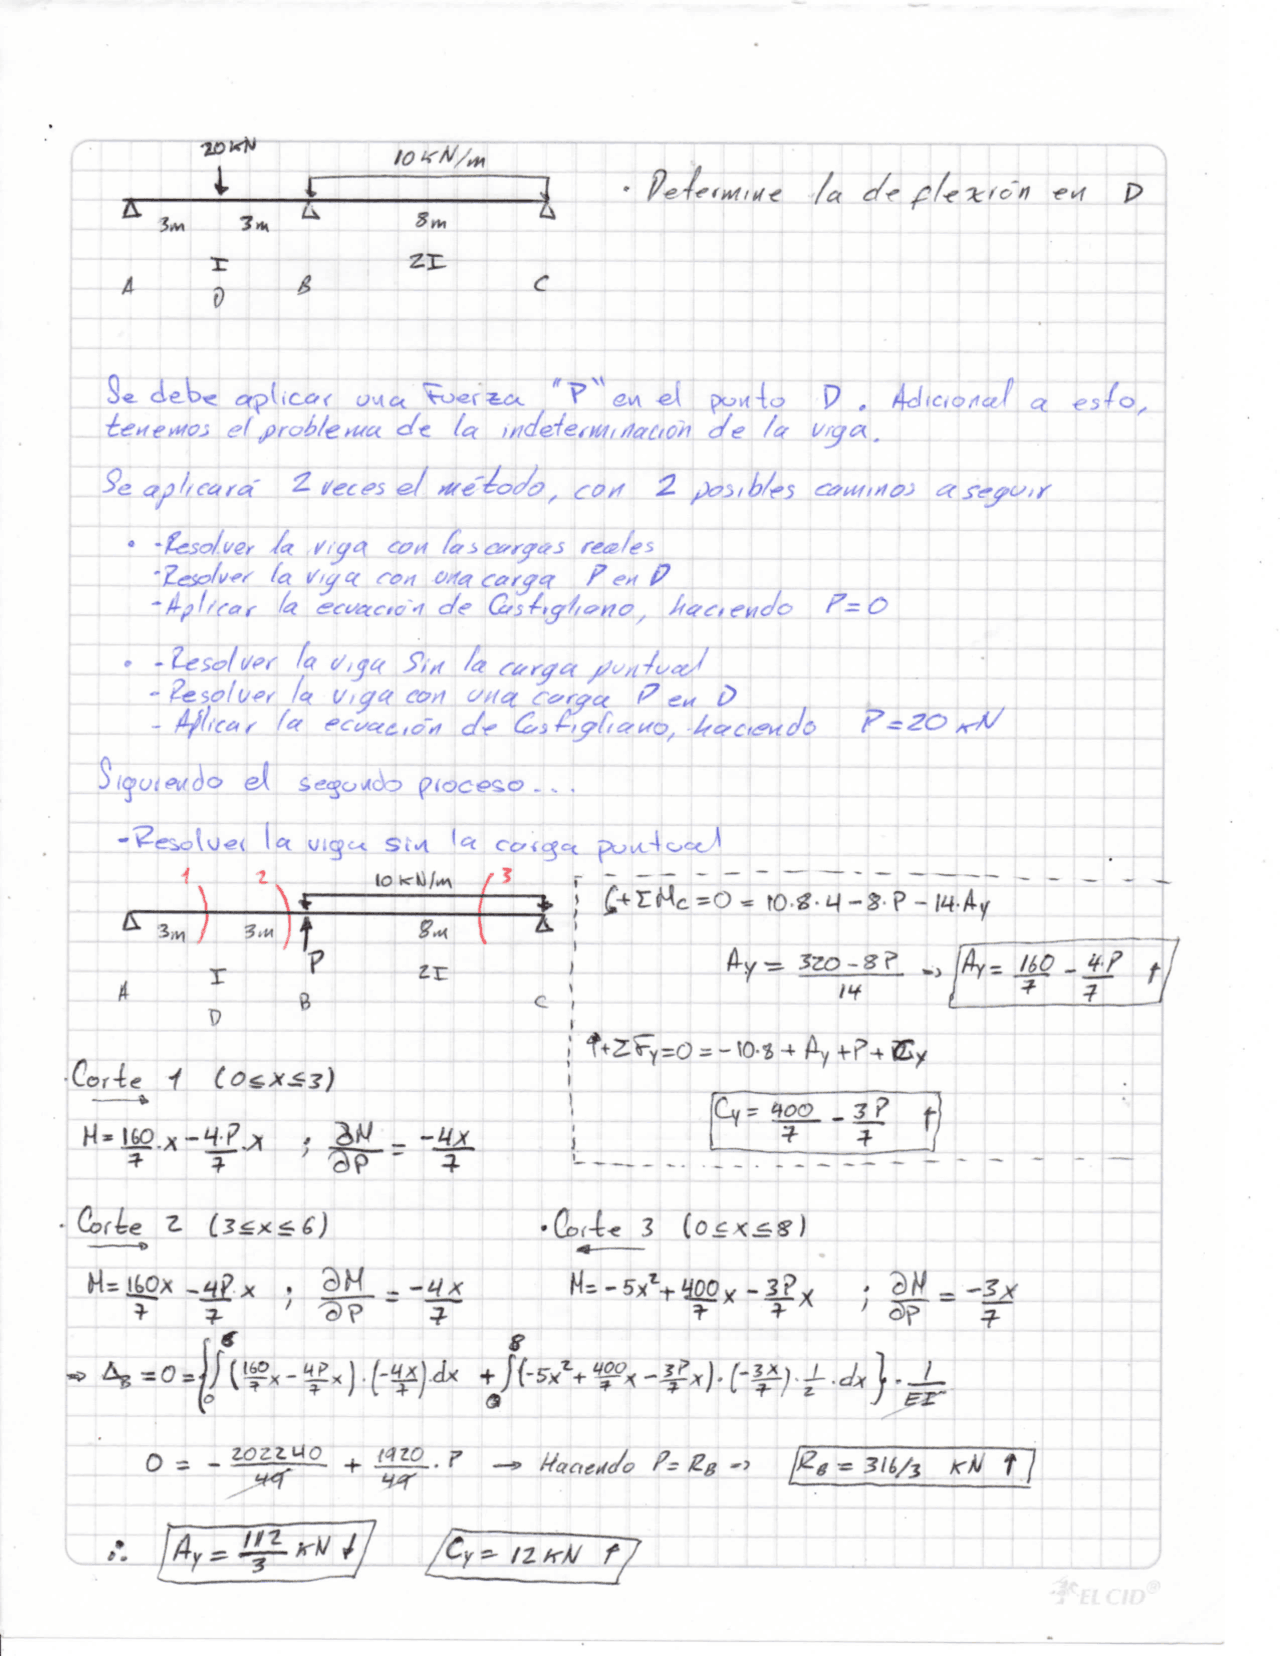 20 kN
10 kN/m
· Determine la deflexión en D
3m 3m 8m
I 2I
A D B C
Se debe aplicar una Fuerza "P" en el punto D. Adicional a esto,
tenemos el problema de la indeterminación de la viga.
Se aplicará 2 veces el método, con 2 posibles caminos a seguir
• -Resolver la viga con las cargas reales
-Resolver la viga con una carga P en D
-Aplicar la ecuación de Castigliano, haciendo P=0
• -Resolver la viga Sin la carga puntual
- Resolver la viga con una carga P en D
- Aplicar la ecuación de Castigliano, haciendo P=20 kN
Siguiendo el segundo proceso...
-Resolver la viga sin la carga puntual
1 2 10 kN/m 3
3m 3m 8m
P
I 2I
A D B C
↺+ΣMc=0 = 10·8·4-8·P-14·Ay
Ay = (320-8P)/14 → Ay = 160/7 - 4·P/7 ↑
↑+ΣFy=0=-10·8+Ay+P+Cy
Cy = 400/7 - 3P/7 ↑
·Corte 1 (0≤x≤3)
M=160/7·x-4·P/7·x ; ∂M/∂P = -4x/7
·Corte 2 (3≤x≤6)
M=160x/7 - 4P/7·x ; ∂M/∂P = -4x/7
·Corte 3 (0≤x≤8)
M=-5x²+400/7 x - 3P/7 x ; ∂M/∂P = -3x/7
⇒ ΔB=0={∫₀⁶(160/7 x - 4P/7 x)·(-4x/7)·dx + ∫₀⁸(-5x²+400/7 x - 3P/7 x)·(-3x/7)·1/2·dx}·1/EI
0 = - 202240/49 + 1920/49·P → Haciendo P=RB ⇒ RB=316/3 kN ↑
∴ Ay=112/3 kN ↓ Cy=12 kN ↑
EL CID®